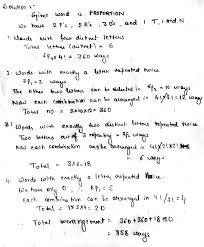 Solution :-
Given word is PROPORTION
We have 2P's, 2R's, 3O's, and 1 T, I and N
1. Words with four distinct letters
Total letters (distinct) = 6
6P4 = 360 ways
2. Words with exactly a letter repeated twice
3P1 = 3 ways
The other two letters can be selected in = 10 ways
Now each combination can be arranged in 4!/2! = 12 ways
Total no = 3×10×12 = 360
3. Words with exactly two distinct letters repeated twice
Two letters out of 3 repeating = 3 ways
Now each combination can be arranged in 4!/2!×2!
= 6 ways
Total = 3×6 = 18
4. Words with exactly a letter repeated
We have only O,
Each combination can be arranged in 4!/3! = 4
Total = 1×5×4 = 20
Total arrangement = 360+360+18+20
= 758 ways